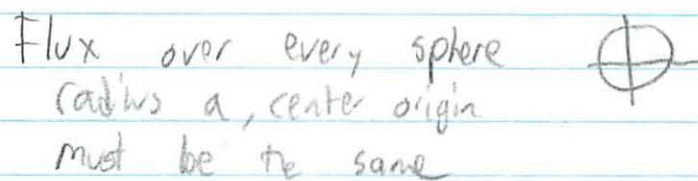 Flux over every sphere
radius a, center origin
must be the same